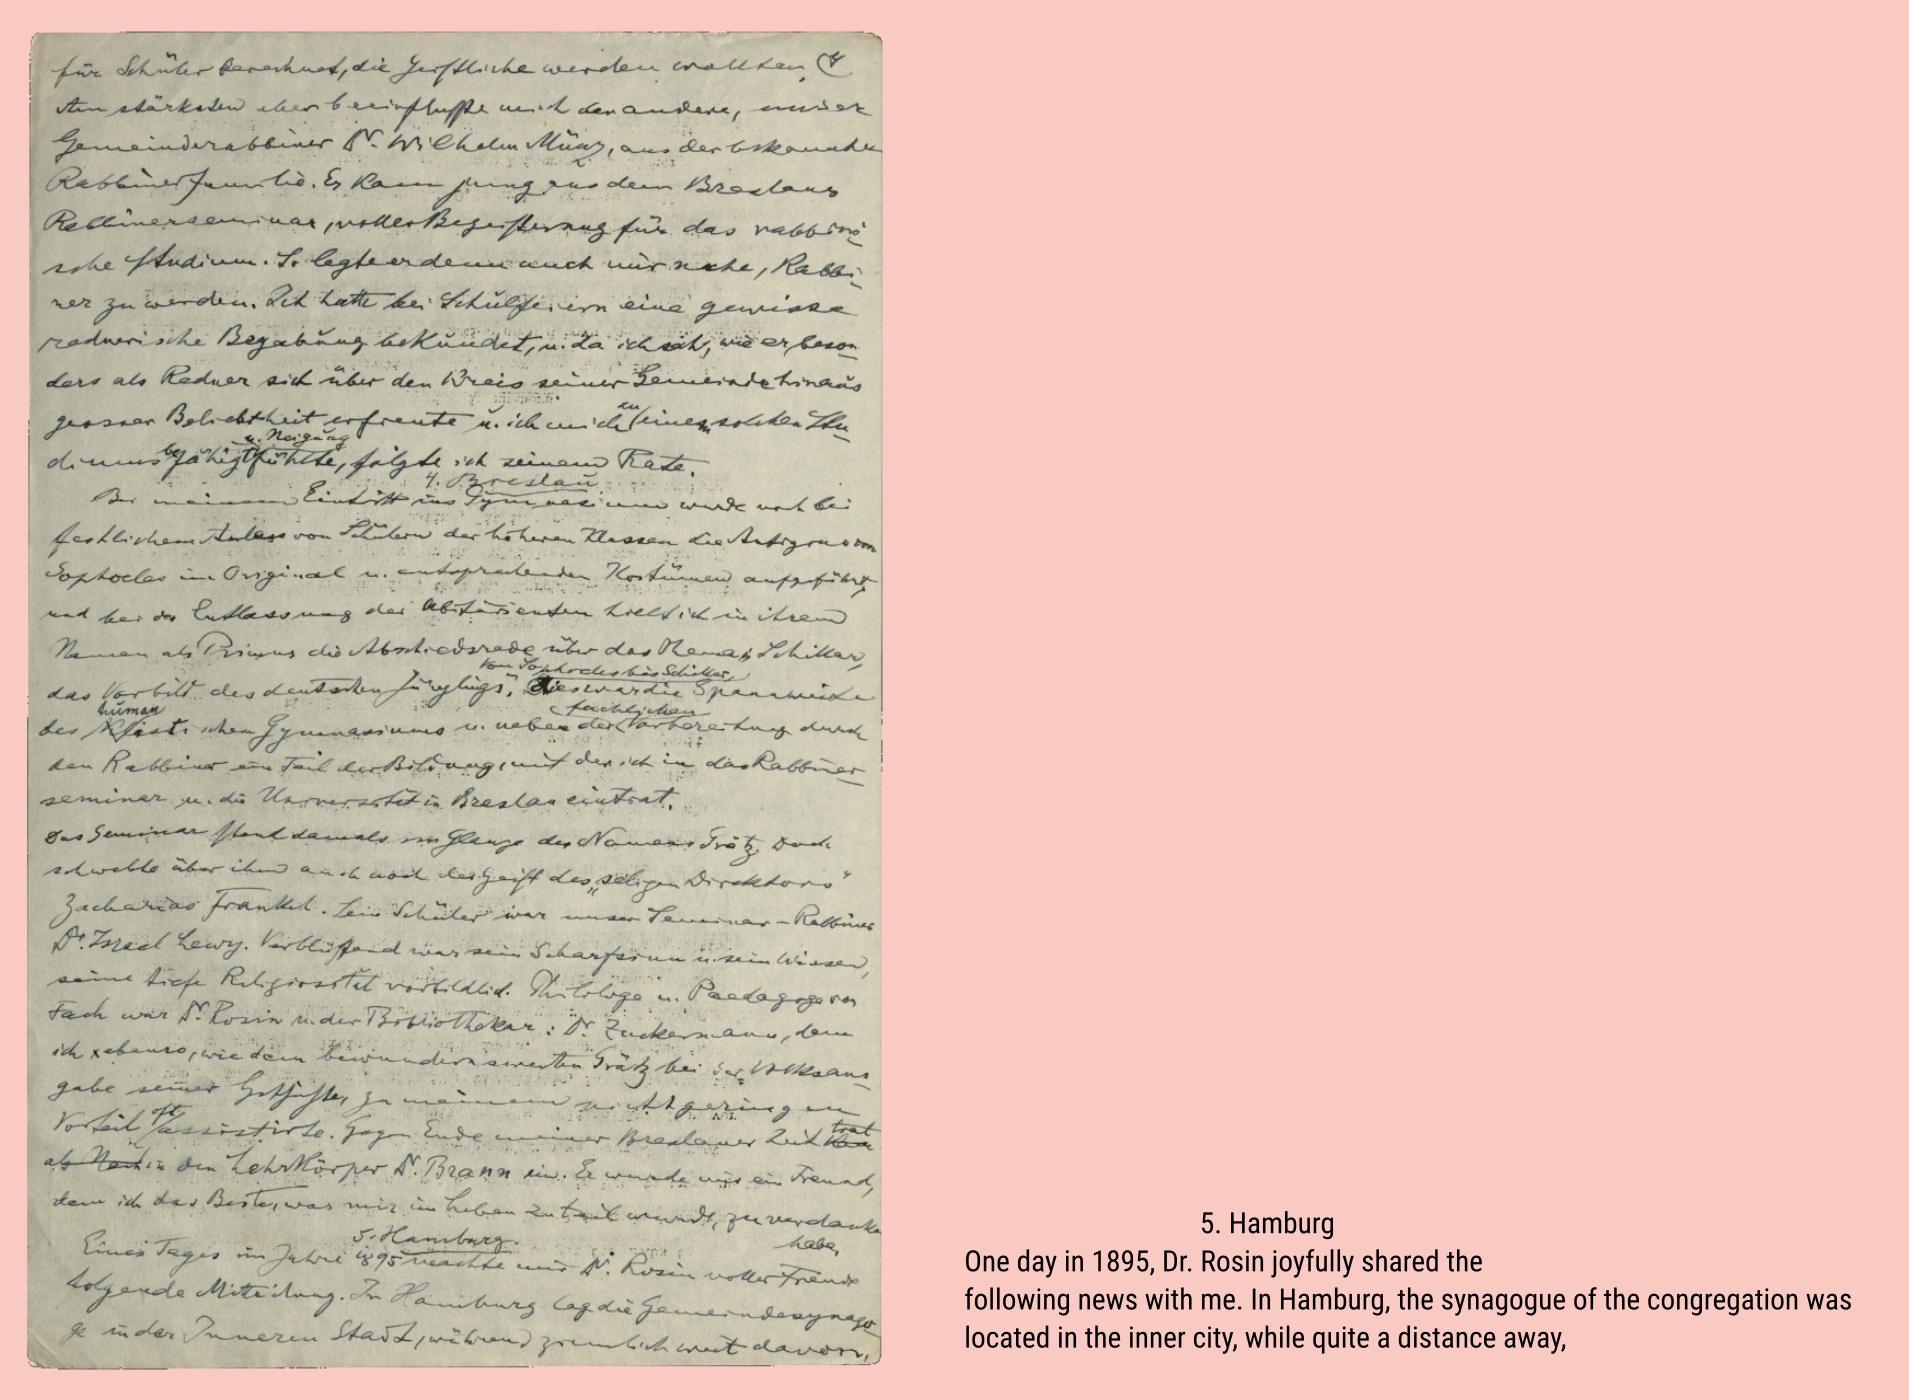 für Schüler berechnet, die Geistliche werden wollten. 4
Am stärksten aber beeinflusste mich der andere, unser
Gemeinderabbiner Dr. Wilhelm Münz, aus der bekannten
Rabbinerfamilie. Er kam jung aus dem Breslauer
Rabbinerseminar, voller Begeisterung für das rabbini-
sche Studium. So legte er denn auch mir nahe, Rabbi-
ner zu werden. Ich hatte bei Schulfeiern eine gewisse
rednerische Begabung bekundet, u. da ich sah, wie er beson-
ders als Redner sich über den Kreis seiner Gemeinde hinaus
grosser Beliebtheit erfreute u. ich mich zu einem solchen Stu-
diums befähigt u. Neigung fühlte, folgte ich seinem Rate.
4. Breslau
Bei meinem Eintritt ins Gymnasium wurde noch bei
festlichem Anlass von Schülern der höheren Klassen die Antigone von
Sophocles im Original u. entsprechenden Kostümen aufgeführt,
und bei der Entlassung der Abiturienten hielt ich in ihrem
Namen als Primus die Abschiedsrede über das Thema: Schiller,
das Vorbild des deutschen Jünglings". Von Sophocles bis Schiller, dies war die Spannweite
des humanistischen Gymnasiums u. neben der fachlichen Vorbereitung durch
den Rabbiner ein Teil der Bildung, mit der ich in das Rabbiner-
seminar u. die Universität in Breslau eintrat.
Das Seminar stand damals im Glanze des Namens Grätz. Doch
schwebte über ihm auch noch der Geist des „seligen Direktors"
Zacharias Frankel. Sein Schüler war unser Seminar-Rabbiner
Dr. Israel Lewy. Verblüffend war sein Scharfsinn u. sein Wissen,
seine tiefe Religiosität vorbildlich. Philologe u. Paedagoge von
Fach war Dr. Rosin u. der Bibliothekar: Dr. Zuckermann, dem
ich ebenso, wie dem bewundernswerten Grätz bei der Volksaus-
gabe seiner Geschichte, zu meinem nicht geringen
Vorteil oft assistirte. Gegen Ende meiner Breslauer Zeit trat
als Nach in den Lehrkörper Dr. Brann ein. Er wurde mir ein Freund,
dem ich das Beste, was mir im Leben zuteil wurde, zu verdanken
habe.
5. Hamburg.
Eines Tages im Jahre 1895 machte mir Dr. Rosin voller Freude
folgende Mitteilung. In Hamburg lag die Gemeindesynago-
ge in der Inneren Stadt, während ziemlich weit davon,
5. Hamburg
One day in 1895, Dr. Rosin joyfully shared the
following news with me. In Hamburg, the synagogue of the congregation was
located in the inner city, while quite a distance away,